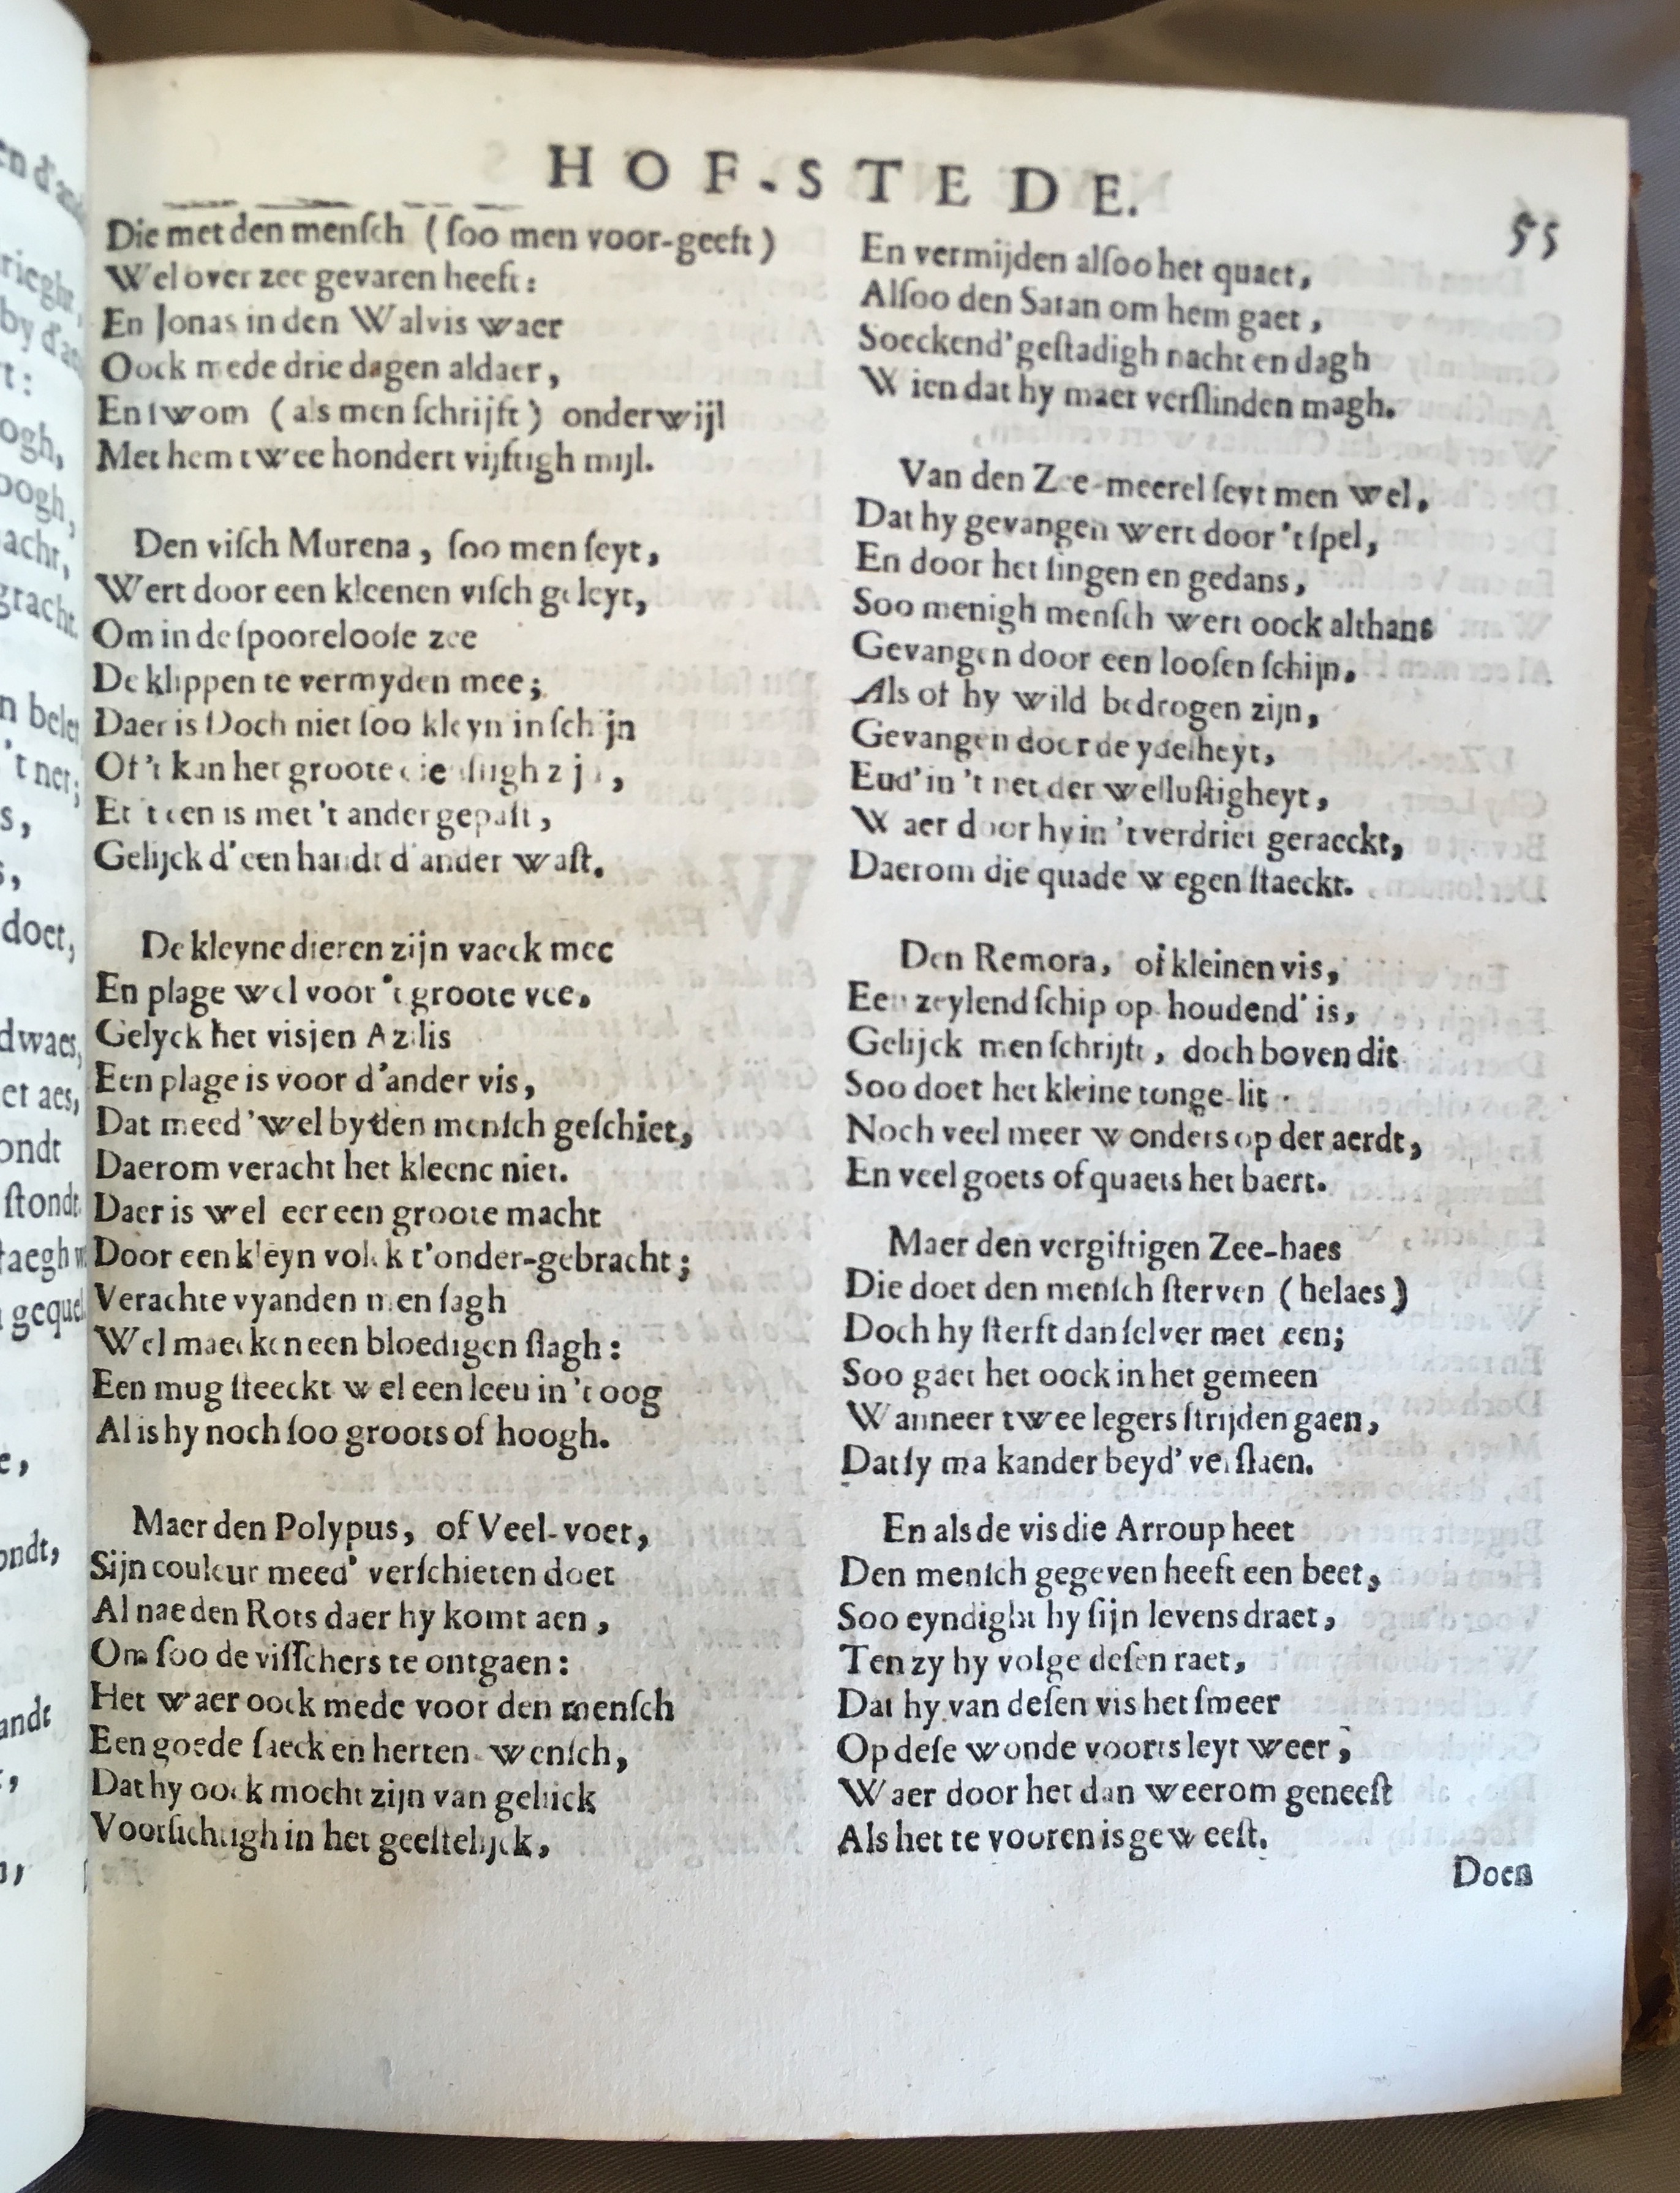 HOF-STEDE.
55
Die met den menſch (ſoo men voor-geeft)
Wel over zee gevaren heeft:
En Jonas in den Walvis waer
Oock mede drie dagen aldaer,
En ſwom (als men ſchrijft) onderwijl
Met hem twee hondert vijftigh mijl.
Den viſch Murena, ſoo men ſeyt,
Wert door een kleenen viſch geleyt,
Om in de ſpoorelooſe zee
De klippen te vermyden mee;
Daer is Doch niet ſoo kleyn in ſchijn
Of 't kan het groote dienſtigh zijn,
En 't een is met 't ander gepaſt,
Gelijck d'een handt d'ander waſt.
De kleyne dieren zijn vaeck mee
En plage wel voor 't groote vee.
Gelyck het visjen Azilis
Een plage is voor d'ander vis,
Dat meed' wel by den menſch geſchiet,
Daerom veracht het kleene niet.
Daer is wel eer een groote macht
Door een kleyn volck t'onder-gebracht;
Verachte vyanden men ſagh
Wel maecken een bloedigen ſlagh:
Een mug ſteeckt wel een leeu in 't oog
Al is hy noch ſoo groots of hoogh.
Maer den Polypus, of Veel-voet,
Sijn couleur meed' verſchieten doet
Al nae den Rots daer hy komt aen,
Om ſoo de viſſchers te ontgaen:
Het waer oock mede voor den menſch
Een goede ſaeck en herten-wenſch,
Dat hy oock mocht zijn van gelijck
Voorſichtigh in het geeſtelijck,
En vermijden alſoo het quaet,
Alſoo den Satan om hem gaet,
Soeckend' geſtadigh nacht en dagh
Wien dat hy maer verſlinden magh.
Van den Zee-meerel ſeyt men wel,
Dat hy gevangen wert door 't ſpel,
En door het ſingen en gedans,
Soo menigh menſch wert oock althans
Gevangen door een looſen ſchijn.
Als of hy wild bedrogen zijn,
Gevangen door de ydelheyt,
End' in 't net der welluſtigheyt,
Waer door hy in 't verdriet geraeckt,
Daerom die quade wegen ſtaeckt.
Den Remora, of kleinen vis,
Een zeylend ſchip op houdend' is,
Gelijck men ſchrijft, doch boven dit
Soo doet het kleine tonge-lit
Noch veel meer wonders op der aerdt,
En veel goets of quaets het baert.
Maer den vergiftigen Zee-haes
Die doet den menſch ſterven (helaes)
Doch hy ſterft dan ſelver met een;
Soo gaet het oock in het gemeen
Wanneer twee legers ſtrijden gaen,
Dat ſy malkander beyd' verſlaen.
En als de vis die Arroup heet
Den menſch gegeven heeft een beet,
Soo eyndight hy ſijn levens draet,
Ten zy hy volge deſen raet,
Dat hy van deſen vis het ſmeer
Op deſe wonde voorts leyt weer;
Waer door het dan weerom geneeſt
Als het te vooren is geweeſt.
Doen